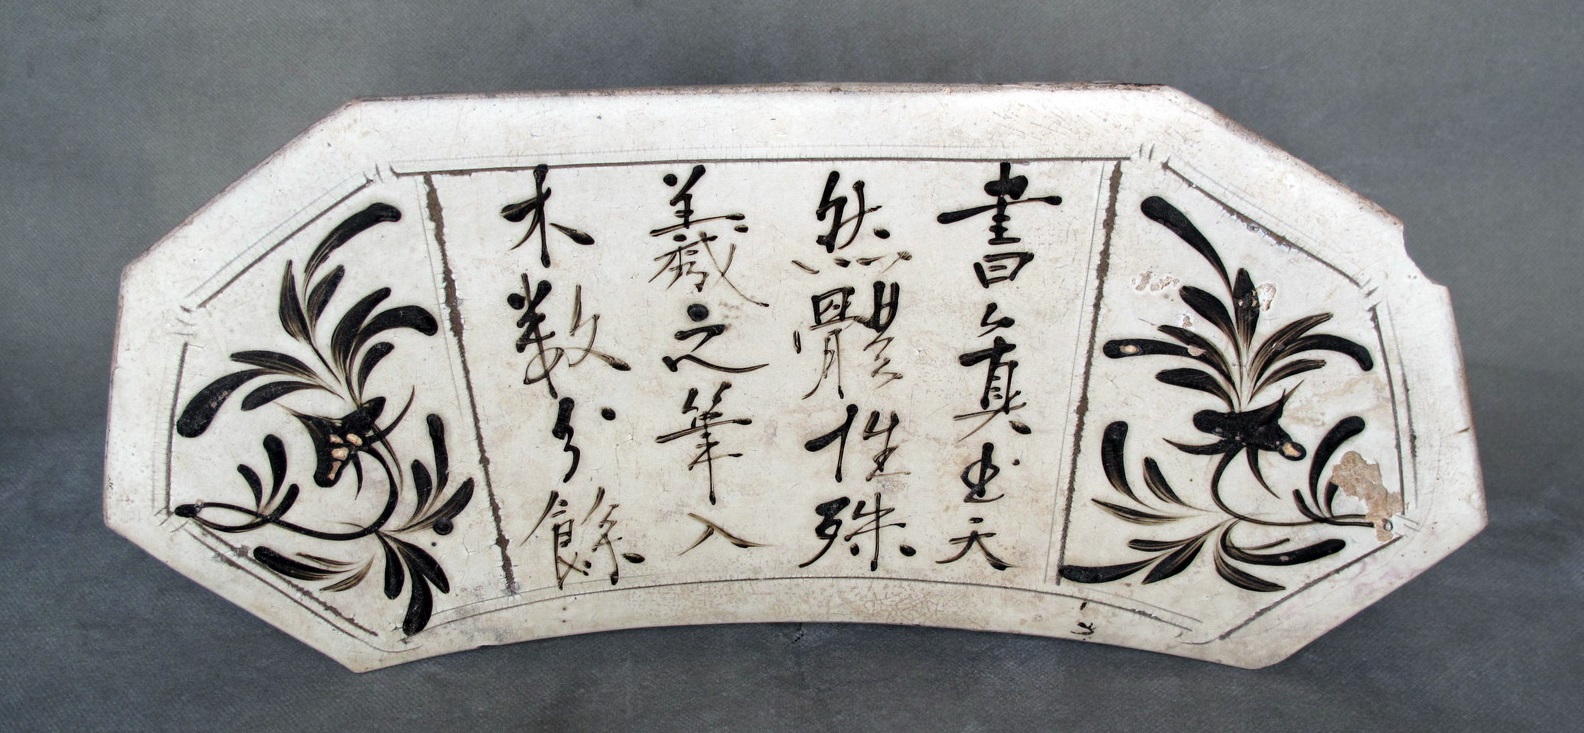 書真出天
然體性殊
羲之筆入
木数分餘